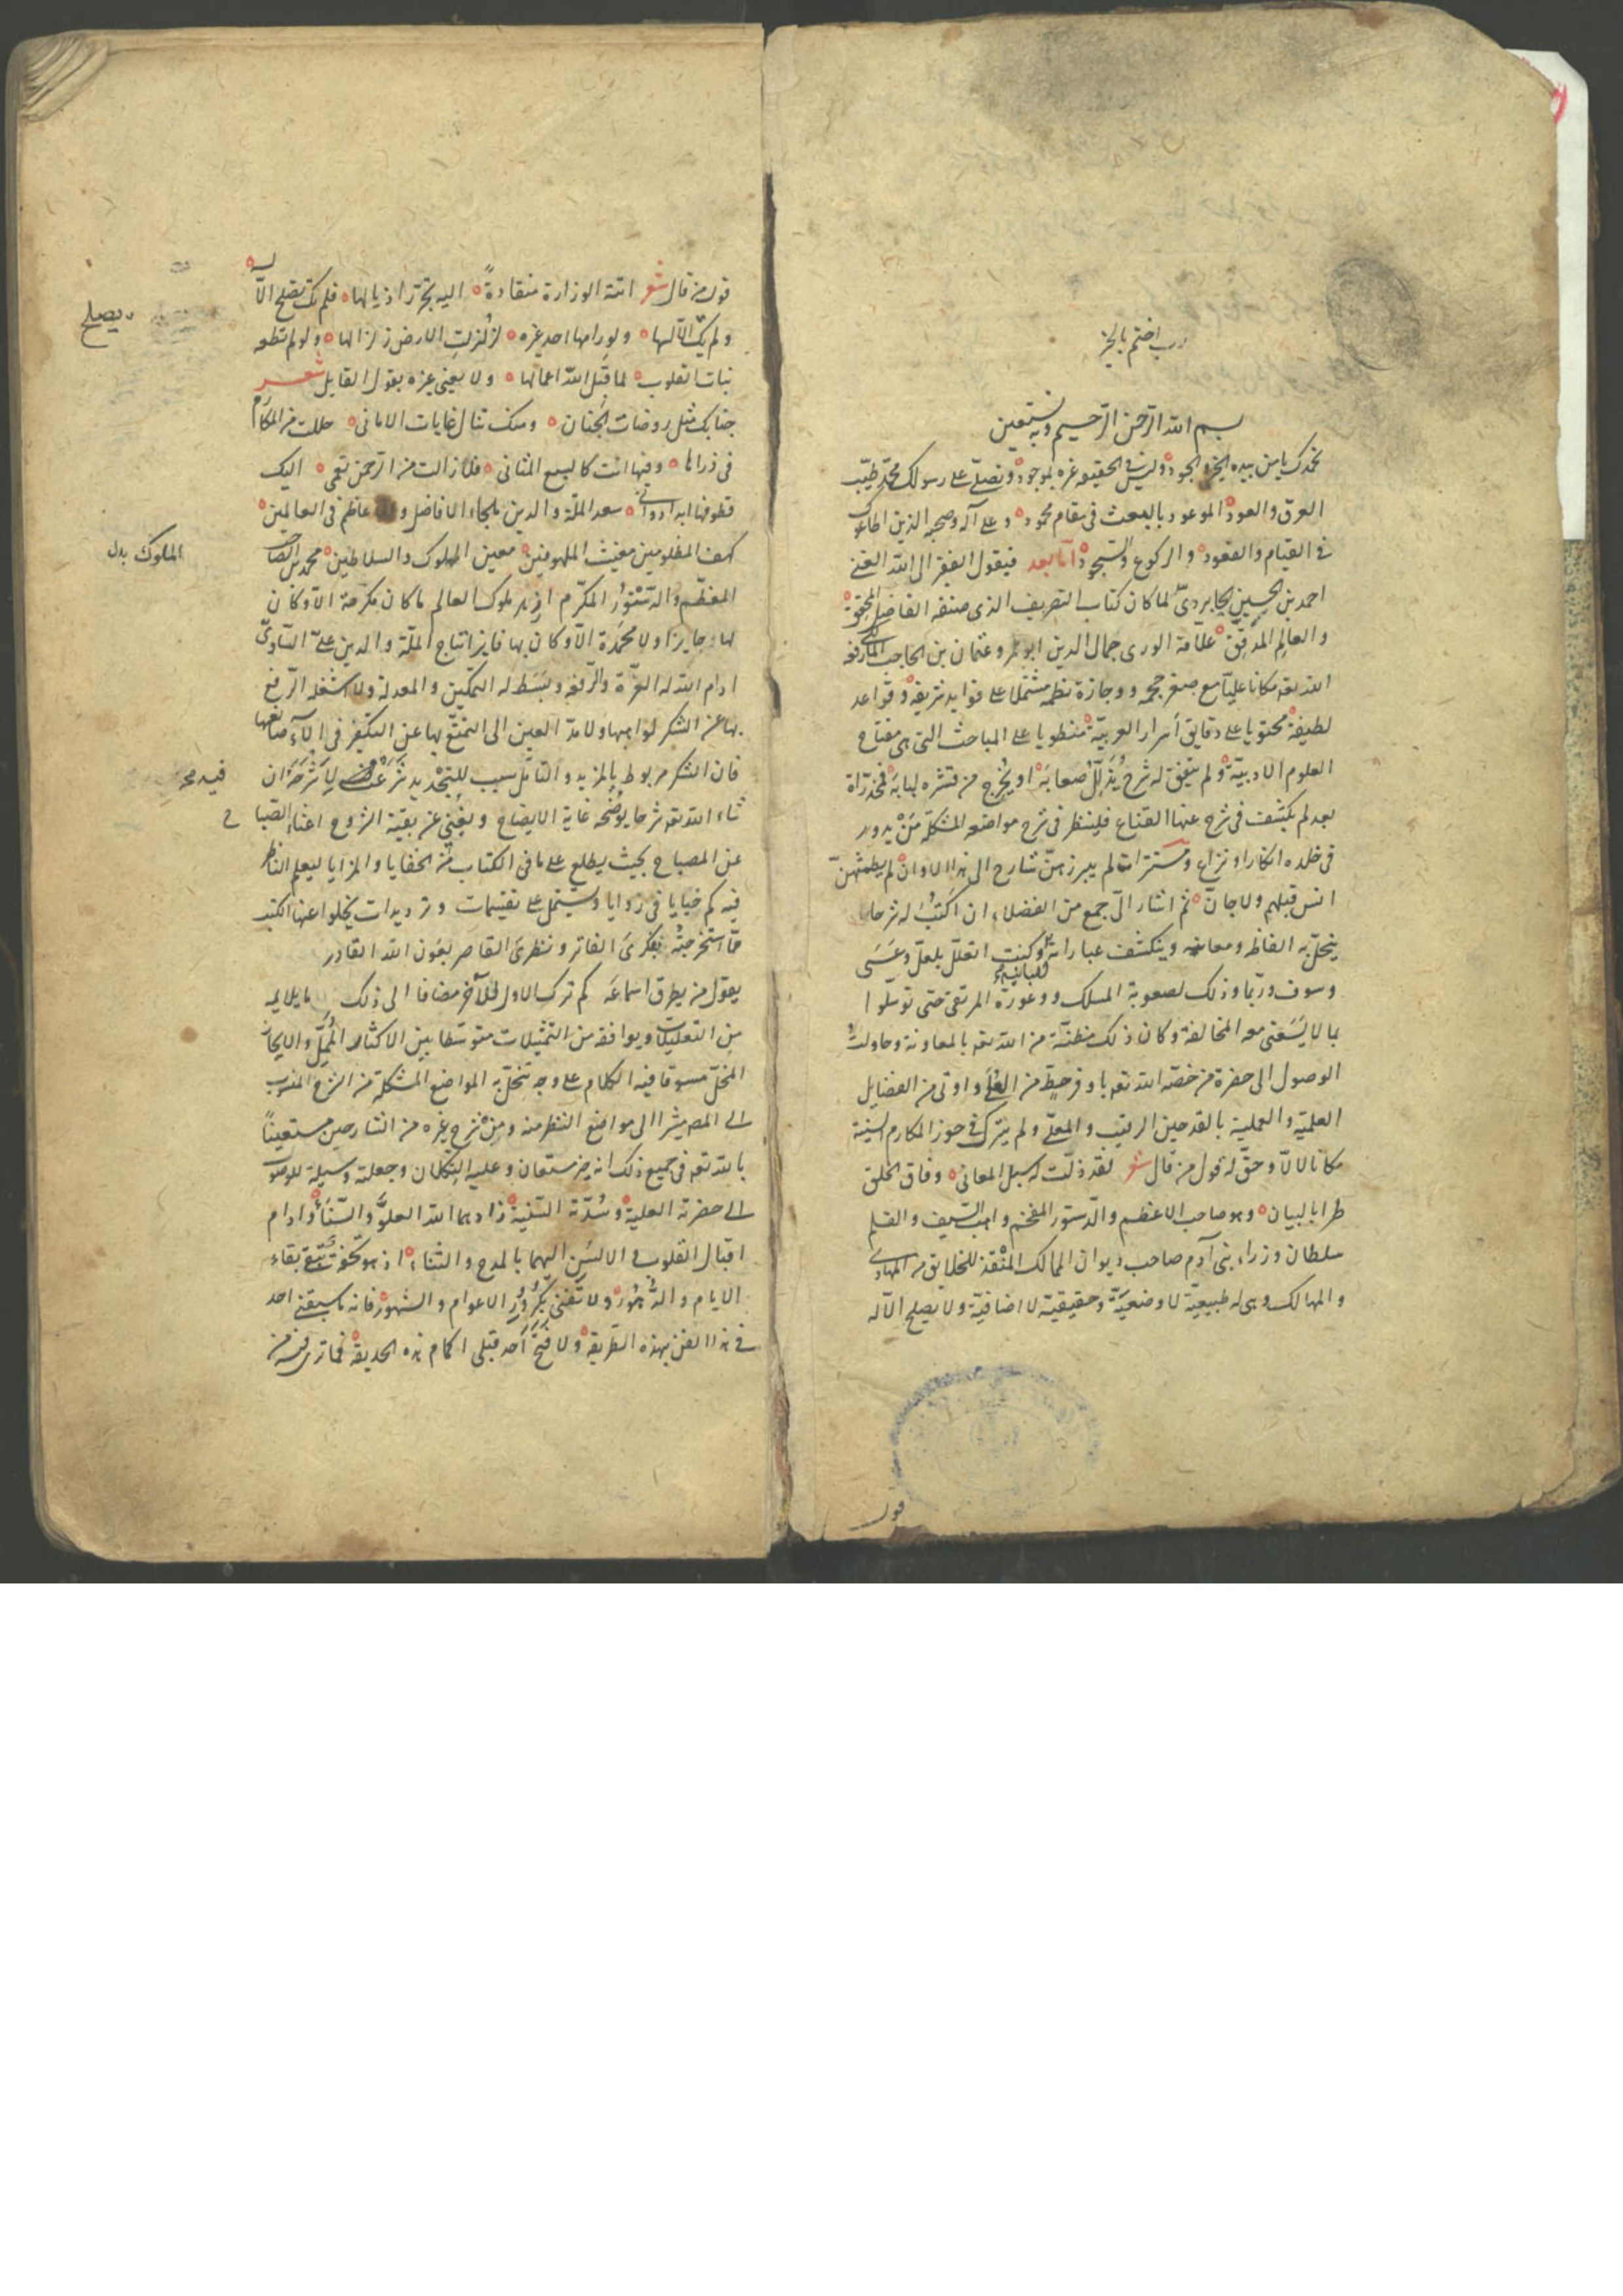 رب اختم بالخير
بسم الله الرحمن الرحيم وبه نستعين
نحمدك يا من بيده الخير والجود وليس في الحقيقة غيره بموجود ونصلي على رسولك محمد طيب
العرق والعود الموعود بالبعث في مقام محمود وعلى آله وصحبه الذين اطاعوك
في القيام والقعود والركوع والسجود اما بعد فيقول الفقير الى الله الغني
احمد بن الحسين الجاربردي لما كان كتاب التصريف الذي صنفه الفاضل المحقق
والعالم المدقق علامة الورى جمال الدين ابو عمرو عثمان بن الحاجب المالكي رفعه
الله تعه مكانا عليا مع صغر حجمه ووجازة نظمه مشتملا على فوايد شريفة وقواعد
لطيفة محتويا على دقايق اسرار العربية منطويا على المباحث التي هي مفتاح
العلوم الادبية ولم يتفق له شرح يذلل صعابه او يخرج من قشره لبابه فمخدراته
بعد لم يكشف في شرح عنها القناع فلينظر في شرح مواضعه المشكلة من يدور
في خلده انكار او نزاع ومستتراته لم يبرزهن شارح الى هذا الاوان لم يطمثهن
انس قبلهم ولا جان ثم اشار الي جمع من الفضلاء ان اكتب له شرحا
ينحل به الفاظه ومعانيه وينكشف عباراته ومبانيه وكنت اتعلل بلعل وعسى
وسوف وربما وذلك لصعوبة المسلك ووعورة المرتقى حتى توسلوا
بما لا يسعني معه المخالفة وكان ذلك مظنة من الله تعه بالمعاونة وحاولت
الوصول الى حضرة من خصه الله تعه باوفر حظ من العلى واوتي من الفضايل
العلمية والعملية بالقدحين الرقيب والمعلى ولم يترك في حوز المكارم السنية
مكانا لالا وحق له قول من قال شعر لقد ذلت له سبل المعاني وفاق الخلق
طرا بالبيان وهو صاحب الاعظم والدستور المفخم واهب السيف والقلم
سلطان وزراء بني آدم صاحب ديوان الممالك المنقذ للخلايق من المهاوي
والمهالك وهي له طبيعية لا وضعية وحقيقية لا اضافية ولا يصلح الا له
قول
قول من قال شعر اتته الوزارة منقادة اليه تجرر اذيالها فلم تك تصلح الا له
ولم يك الا لها ولو رامها احد غيره لزلزلت الارض زلزالها ولو لم تطعه
بنات القلوب لما قبل الله اعمالها ولا يعني غيره بقول القايل شعر
جنابك مثل روضات الجنان ومنك تنال غايات الاماني حللت من المكارم
في ذراها وفيها انت كالسبع المثاني فلا زالت من الرحمن تهمي اليك
قطوفها ابدا دواني سعد الملة والدين ملجاء الافاضل والاعاظم في العالمين
كهف المظلومين مغيث الملهوفين معين الملوك والسلاطين محمد بن الصاحب
المعظم والدستور المكرم افخر ملوك العالم ما كان مكرمة الا وكان
لها حايزا ولا محمدة الا وكان بها فايزا تاج الملة والدين علي الساوي
ادام الله له العزة والرفعة وبسط له التمكين والمعدلة ولا اشغله الرفع
بها عن الشكر لواهبها ولا مد العين الى التمتع بها عن التفكر في الآء صانعها
فان الشكر مربوط بالمزيد والتامل سبب للتجديد شرعت لا شرحه ان
شاء الله تعه شرحا يوضحه غاية الايضاح ويغني عن بقية الشروح اغناء الصباح
عن المصباح بحيث يطلع على ما في الكتاب من الخفايا والمزايا ليعلم الناظر
فيه كم خبايا في زوايا ويشتمل على تقسيمات وترديدات يخلوا عنها الكتب
مما استخرجته بفكري الفاتر ونظري القاصر بعون الله القادر
يقول من يطرق اسماعه كم ترك الاول للآخر مضافا الى ذلك ما يلايمه
من التعليلات ويوافقه من التمثيلات متوسطا بين الاكثار الممل والايجاز
المخل مسوقا فيه الكلام على وجه تنحل به المواضع المشكلة من الشرح المنسوب
الى المص مشيرا الى مواضع النظر منه ومن شرح غيره من الشارحين مستعينا
بالله تعه في جميع ذلك انه خير مستعان وعليه التكلان وجعلته وسيلة للوصول
الى حضرته العلية وسدته السنية زادهما الله العلو والسناء وادام
اقبال القلوب والالسن اليهما بالمدح والثناء اذ هو تحفة تبقى بقاء
الايام والدهور ولا تفنى بكرور الاعوام والشهور فانه ما سبقني احد
في هذا الفن بهذه الطريقة ولا فتح احد قبلي اكمام هذه الحديقة فما ترى فيه من
يصلح
الملوك بدل